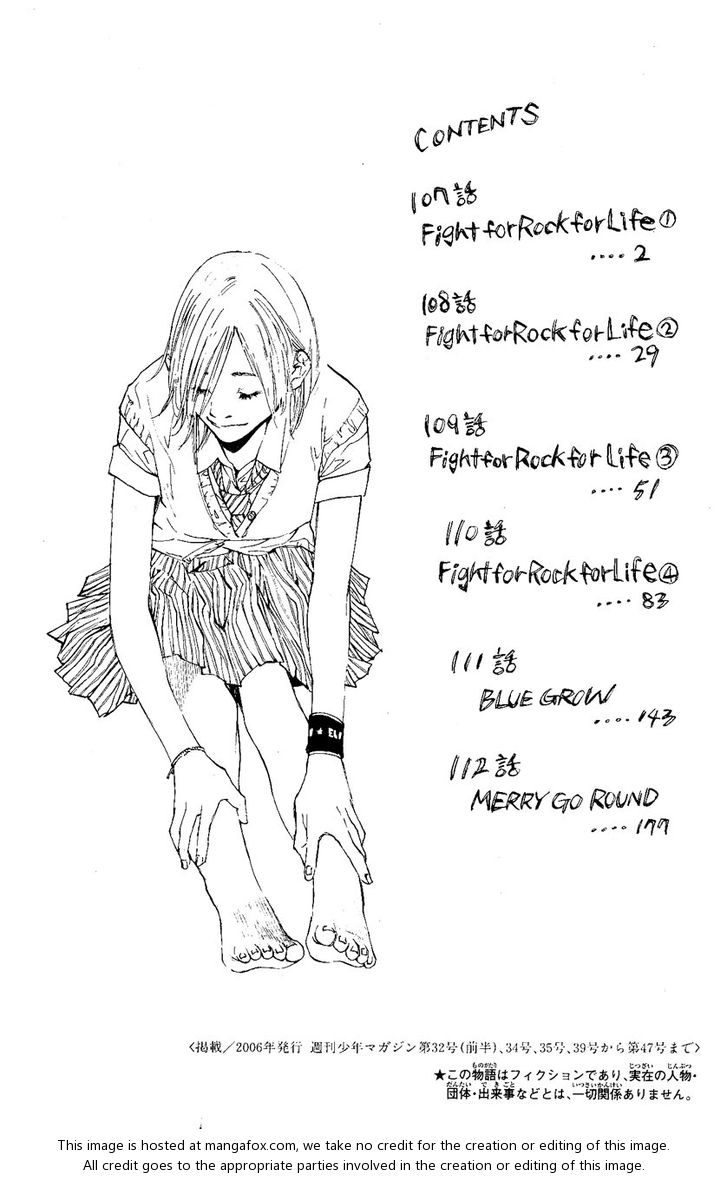 CONTENTS
107話
Fight for Rock for Life①
.... 2
108話
Fight for Rock for Life②
.... 29
109話
Fight for Rock for Life③
.... 51
110話
Fight for Rock for Life④
.... 83
111話
BLUE GROW
.... 143
112話
MERRY GO ROUND
.... 177
〈掲載／2006年発行 週刊少年マガジン第32号(前半)、34号、35号、39号から第47号まで〉
★この物語はフィクションであり、実在の人物・
団体・出来事などとは、一切関係ありません。
This image is hosted at mangafox.com, we take no credit for the creation or editing of this image.
All credit goes to the appropriate parties involved in the creation or editing of this image.